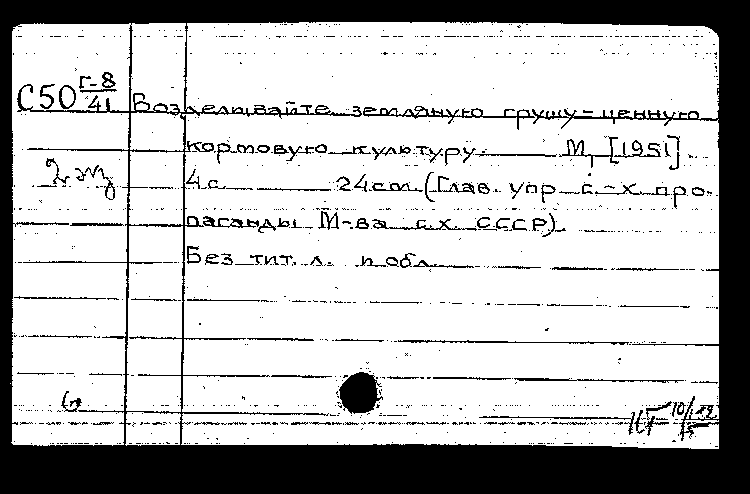 С50 Г-8/41 Возделывайте земляную грушу - ценную
кормовую культуру. М, [1951].
2 экз
4 с. 24 см. (Глав. упр. с.-х. про-
паганды М-ва с.х. СССР).
Без тит. л. и обл.